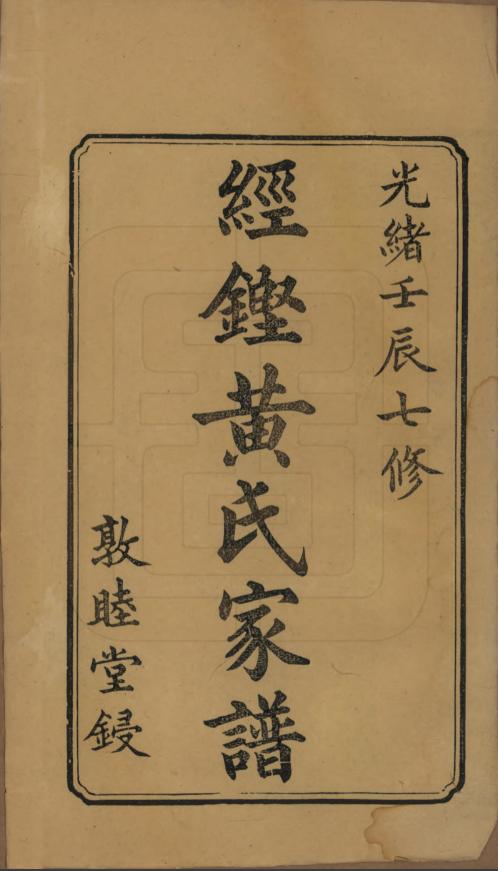 光緒壬辰七修
經鏗黄氏家譜
敦睦堂鋟